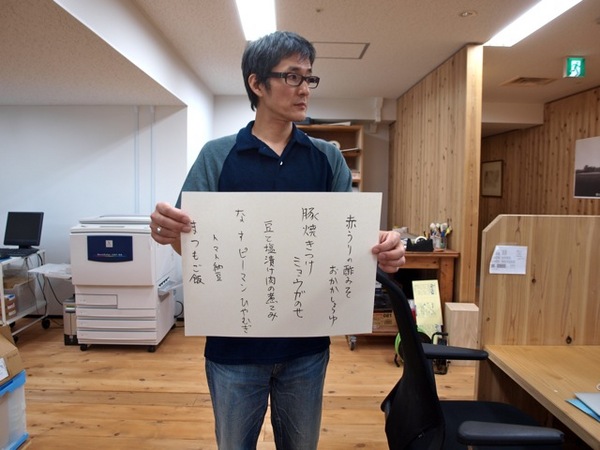 赤うりの酢みそ
おかかしょうゆ
豚焼きつけ
ミョウガのせ
豆と塩漬け肉の煮こみ
なす ピーマン ひやむぎ
トマト納豆
はつもご飯